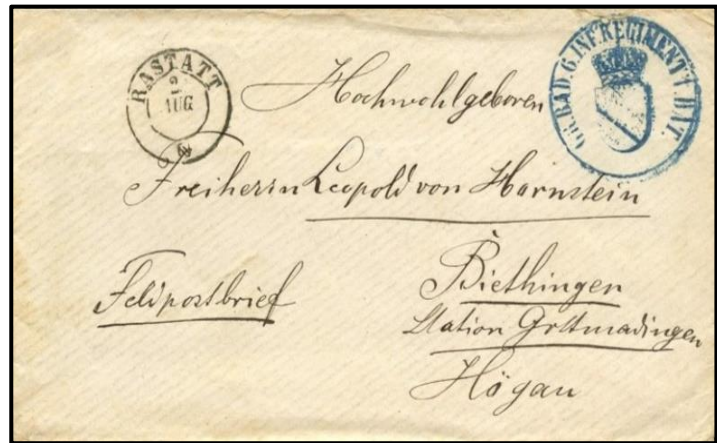 RASTATT
2
AUG
GR.BAD.6.INF.REGIMENT 1.BAT.
Hochwohlgeboren
Freiherrn Leopold von Hornstein
Feldpostbrief
Biethingen
Station Gottmadingen
Högau